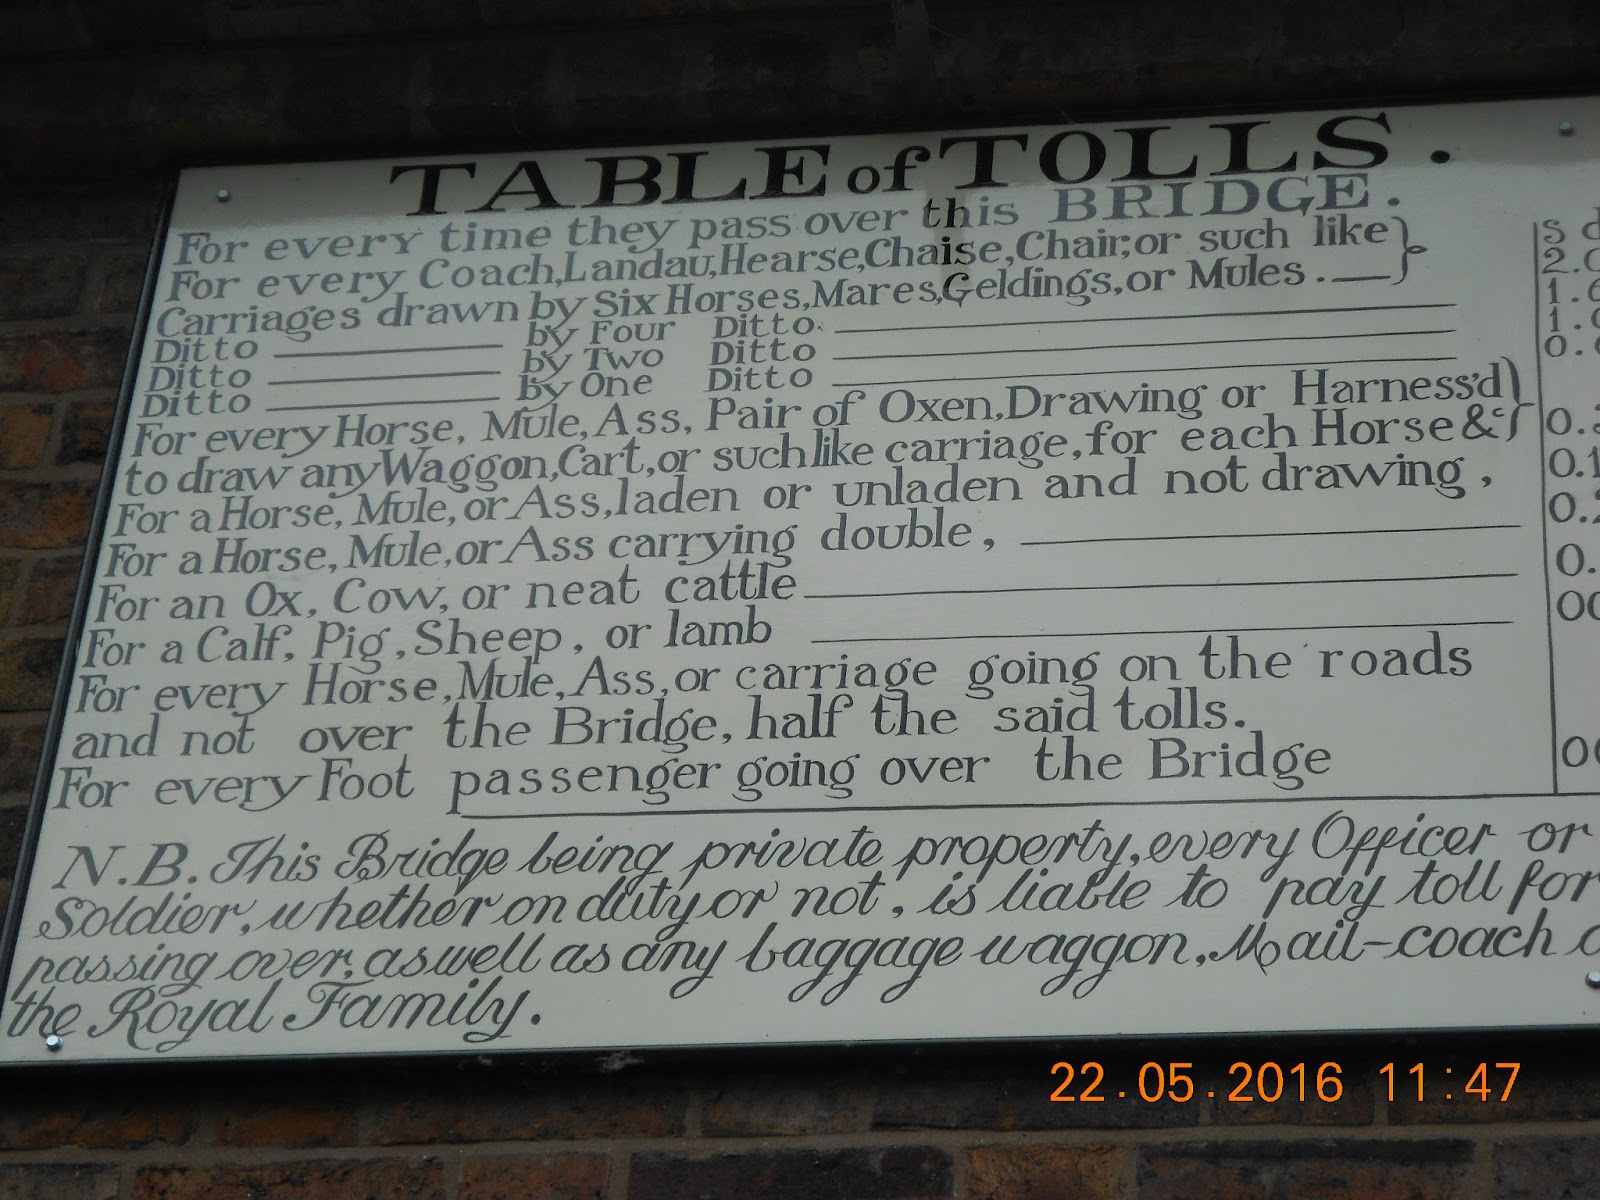 TABLE of TOLLS.
For every time they pass over this BRIDGE.
For every Coach, Landau, Hearse, Chaise, Chair, or such like
Carriages drawn by Six Horses, Mares, Geldings, or Mules.
Ditto by Four Ditto
Ditto by Two Ditto
Ditto by One Ditto
For every Horse, Mule, Ass, Pair of Oxen, Drawing or Harness'd
to draw any Waggon, Cart, or such like carriage, for each Horse &c
For a Horse, Mule, or Ass, laden or unladen and not drawing,
For a Horse, Mule, or Ass carrying double,
For an Ox, Cow, or neat cattle
For a Calf, Pig, Sheep, or lamb
For every Horse, Mule, Ass, or carriage going on the roads
and not over the Bridge, half the said tolls.
For every Foot passenger going over the Bridge
s d
N.B. This Bridge being private property, every Officer or
Soldier, whether on duty or not, is liable to pay toll for
passing over, as well as any baggage waggon, Mail-coach
the Royal Family.
22.05.2016 11:47